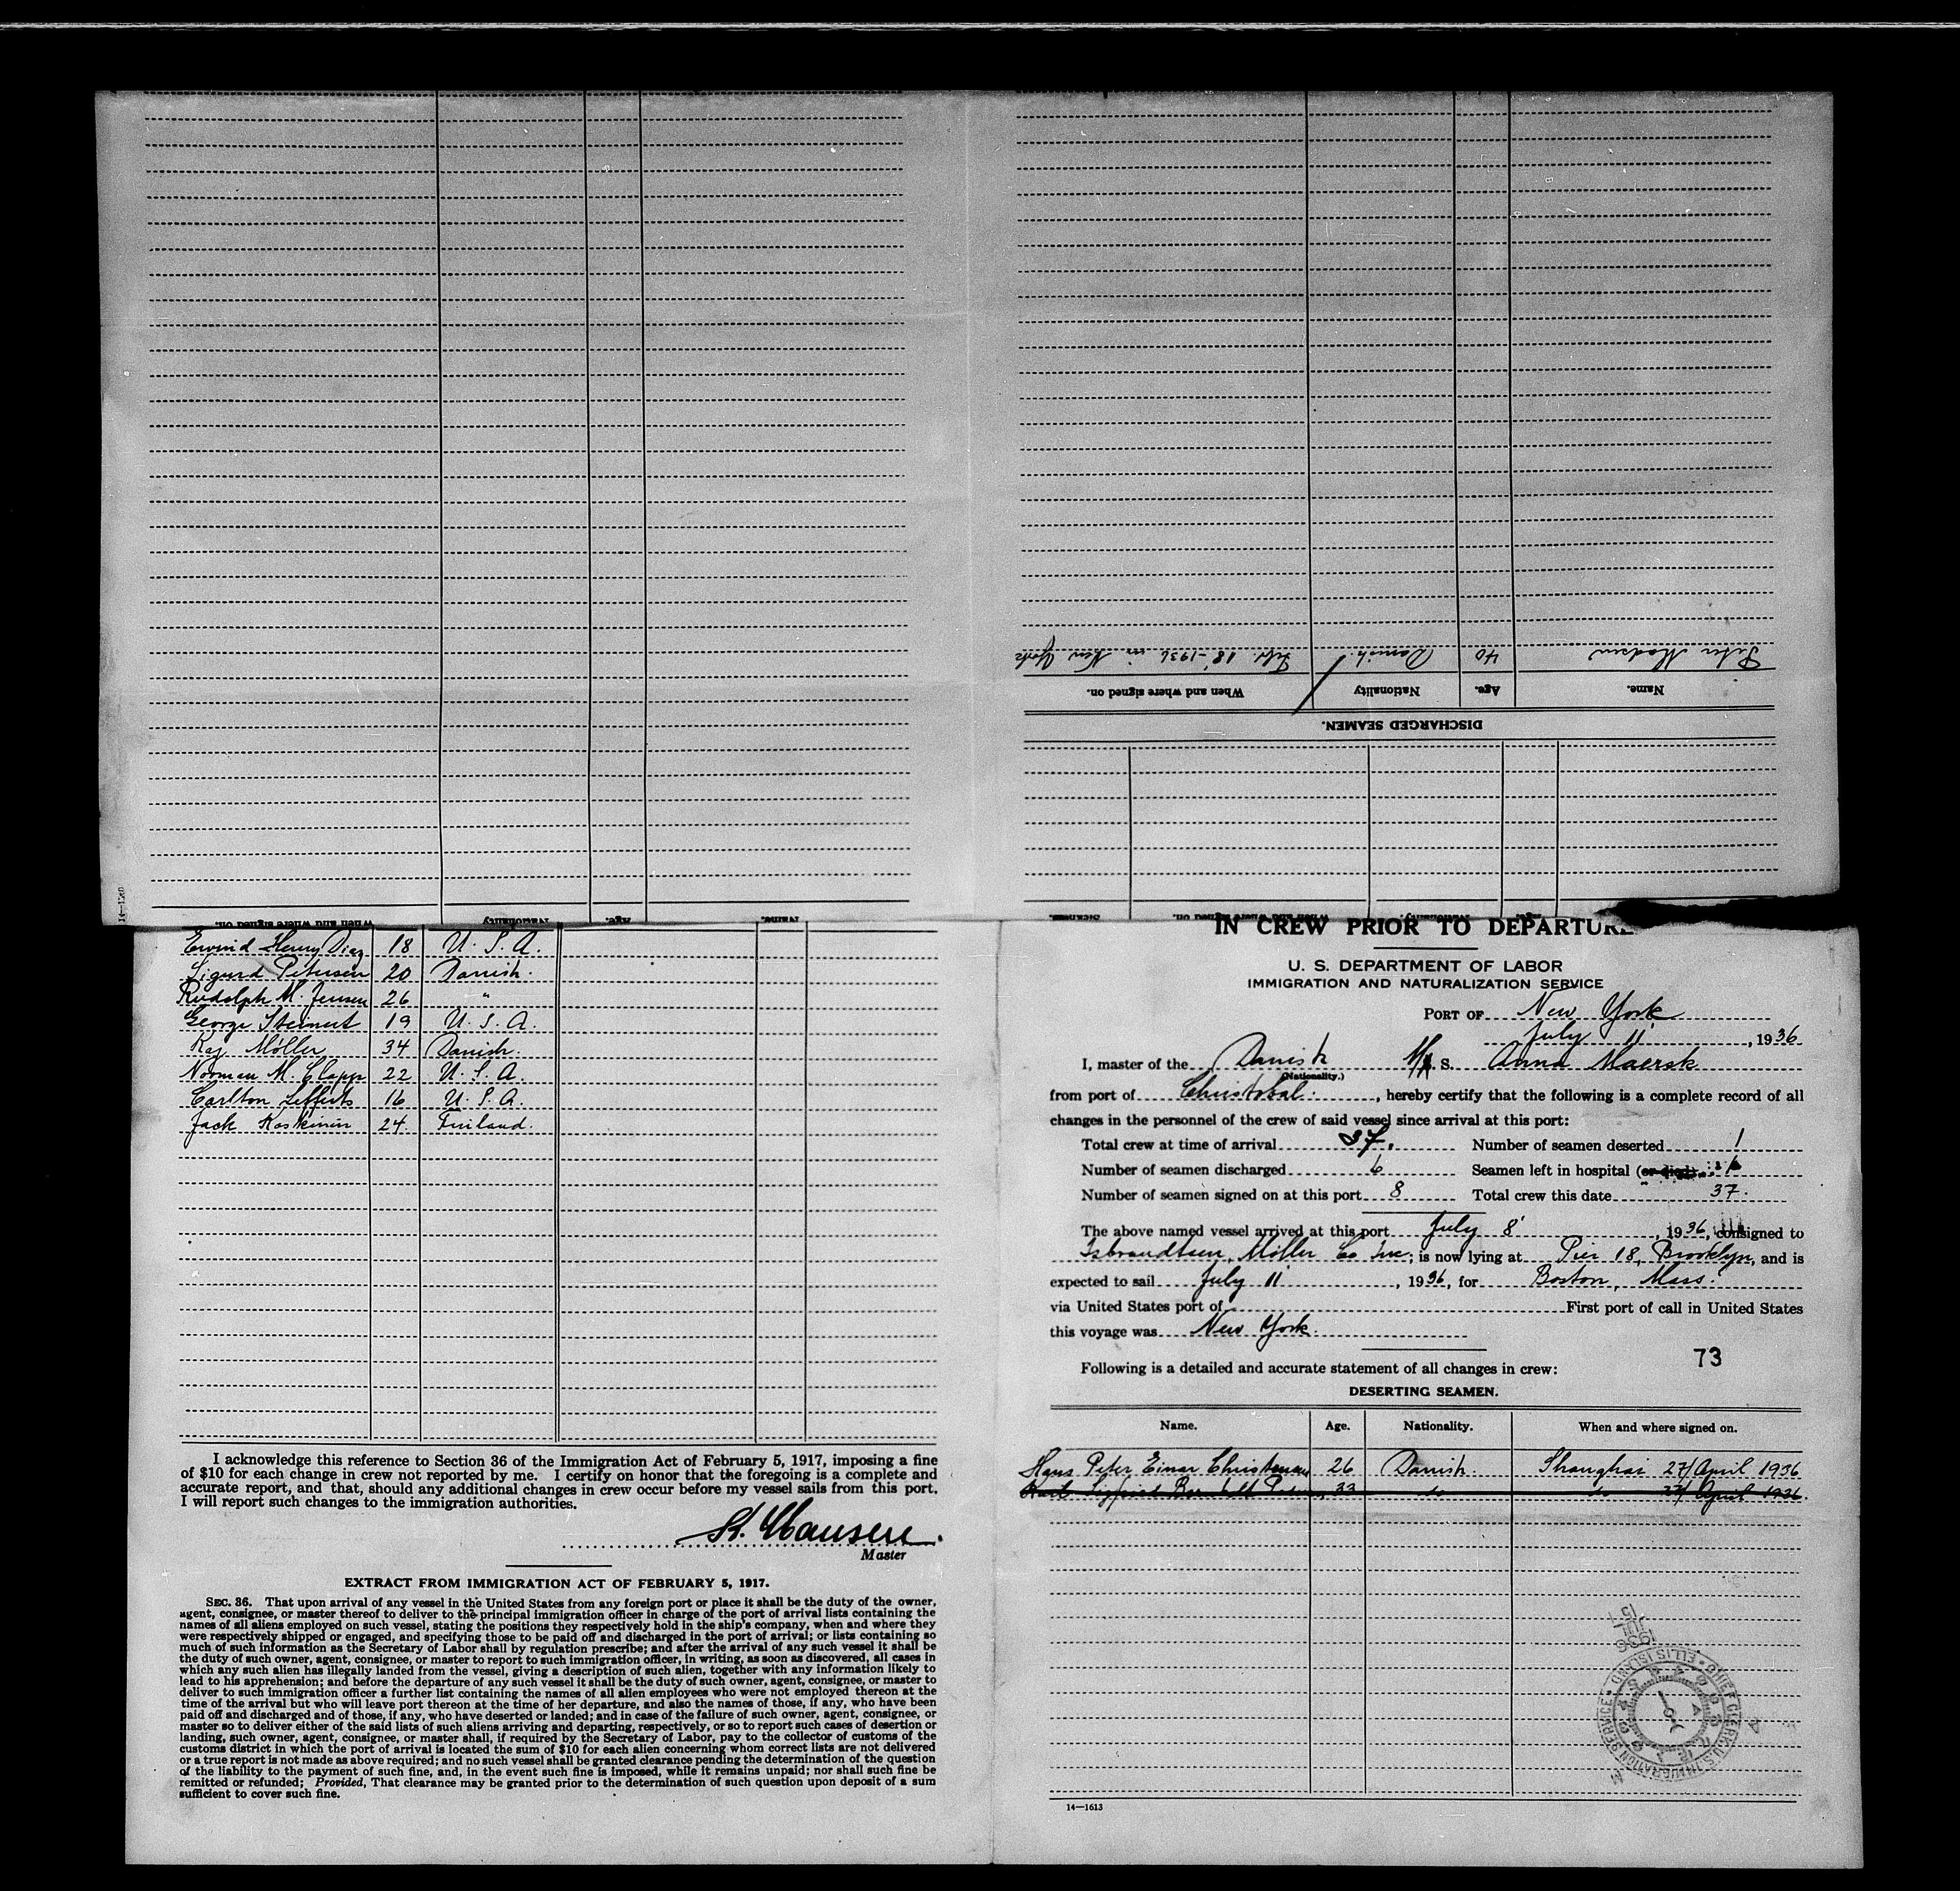 Peter Madsen 40 Danish. Febr. 18'-1936 in New York
Name. Age. Nationality When and where signed on.
DISCHARGED SEAMEN.
14—1260
Name. Age. Nationality When and where signed on.
Name. Age. Nationality. When and where signed on. Sickness.
Henry Diaz 18 U. S. A.
Sigurd Petersen 20 Danish.
Rudolph M. Jensen 26 "
George Steinert 19 U. S. A.
Kaj Møller 34 Danish.
Norman M. Clapp 22 U. S. A.
Carlton Lefferts 16 U. S. A.
Jack Koskinin 24. Finland.
I acknowledge this reference to Section 36 of the Immigration Act of February 5, 1917, imposing a fine
of $10 for each change in crew not reported by me. I certify on honor that the foregoing is a complete and
accurate report, and that, should any additional changes in crew occur before my vessel sails from this port,
I will report such changes to the immigration authorities.
Hansen.
Master
EXTRACT FROM IMMIGRATION ACT OF FEBRUARY 5, 1917.
SEC. 36. That upon arrival of any vessel in the United States from any foreign port or place it shall be the duty of the owner,
agent, consignee, or master thereof to deliver to the principal immigration officer in charge of the port of arrival lists containing the
names of all aliens employed on such vessel, stating the positions they respectively hold in the ship's company, when and where they
were respectively shipped or engaged, and specifying those to be paid off and discharged in the port of arrival; or lists containing so
much of such information as the Secretary of Labor shall by regulation prescribe; and after the arrival of any such vessel it shall be
the duty of such owner, agent, consignee, or master to report to such immigration officer, in writing, as soon as discovered, all cases in
which any such alien has illegally landed from the vessel, giving a description of such alien, together with any information likely to
lead to his apprehension; and before the departure of any such vessel it shall be the duty of such owner, agent, consignee, or master to
deliver to such immigration officer a further list containing the names of all alien employees who were not employed thereon at the
time of the arrival but who will leave port thereon at the time of her departure, and also the names of those, if any, who have been
paid off and discharged and of those, if any, who have deserted or landed; and in case of the failure of such owner, agent, consignee, or
master so to deliver either of the said lists of such aliens arriving and departing, respectively, or so to report such cases of desertion or
landing, such owner, agent, consignee, or master shall, if required by the Secretary of Labor, pay to the collector of customs of the
customs district in which the port of arrival is located the sum of $10 for each alien concerning whom correct lists are not delivered
or a true report is not made as above required; and no such vessel shall be granted clearance pending the determination of the question
of the liability to the payment of such fine, and, in the event such fine is imposed, while it remains unpaid; nor shall such fine be
remitted or refunded; Provided, That clearance may be granted prior to the determination of such question upon deposit of a sum
sufficient to cover such fine.
IN CREW PRIOR TO DEPARTURE
U. S. DEPARTMENT OF LABOR
IMMIGRATION AND NATURALIZATION SERVICE
PORT OF New York
July 11', 1936
I, master of the Danish M. S. Anna Maersk
(Nationality.)
from port of Christobal., hereby certify that the following is a complete record of all
changes in the personnel of the crew of said vessel since arrival at this port:
Total crew at time of arrival 37. Number of seamen deserted 1
Number of seamen discharged 6 Seamen left in hospital (or died)
Number of seamen signed on at this port 8 Total crew this date 37.
The above named vessel arrived at this port July 8', 1936, consigned to
Isbrandtsen, Møller Co Inc; is now lying at Pier 18, Brooklyn, and is
expected to sail July 11', 1936, for Boston, Mass.
via United States port of First port of call in United States
this voyage was New York.
Following is a detailed and accurate statement of all changes in crew: 73
DESERTING SEAMEN.
Name. Age. Nationality. When and where signed on.
Hans Peter Einar Christensen 26 Danish. Shanghai 27/April 1936
33 do do 27/ April 1936.
1936 JUL 15
CHIEF CLERK U.S. IMMIGRATION SERVICE · ELLIS ISLAND ·
14—1613